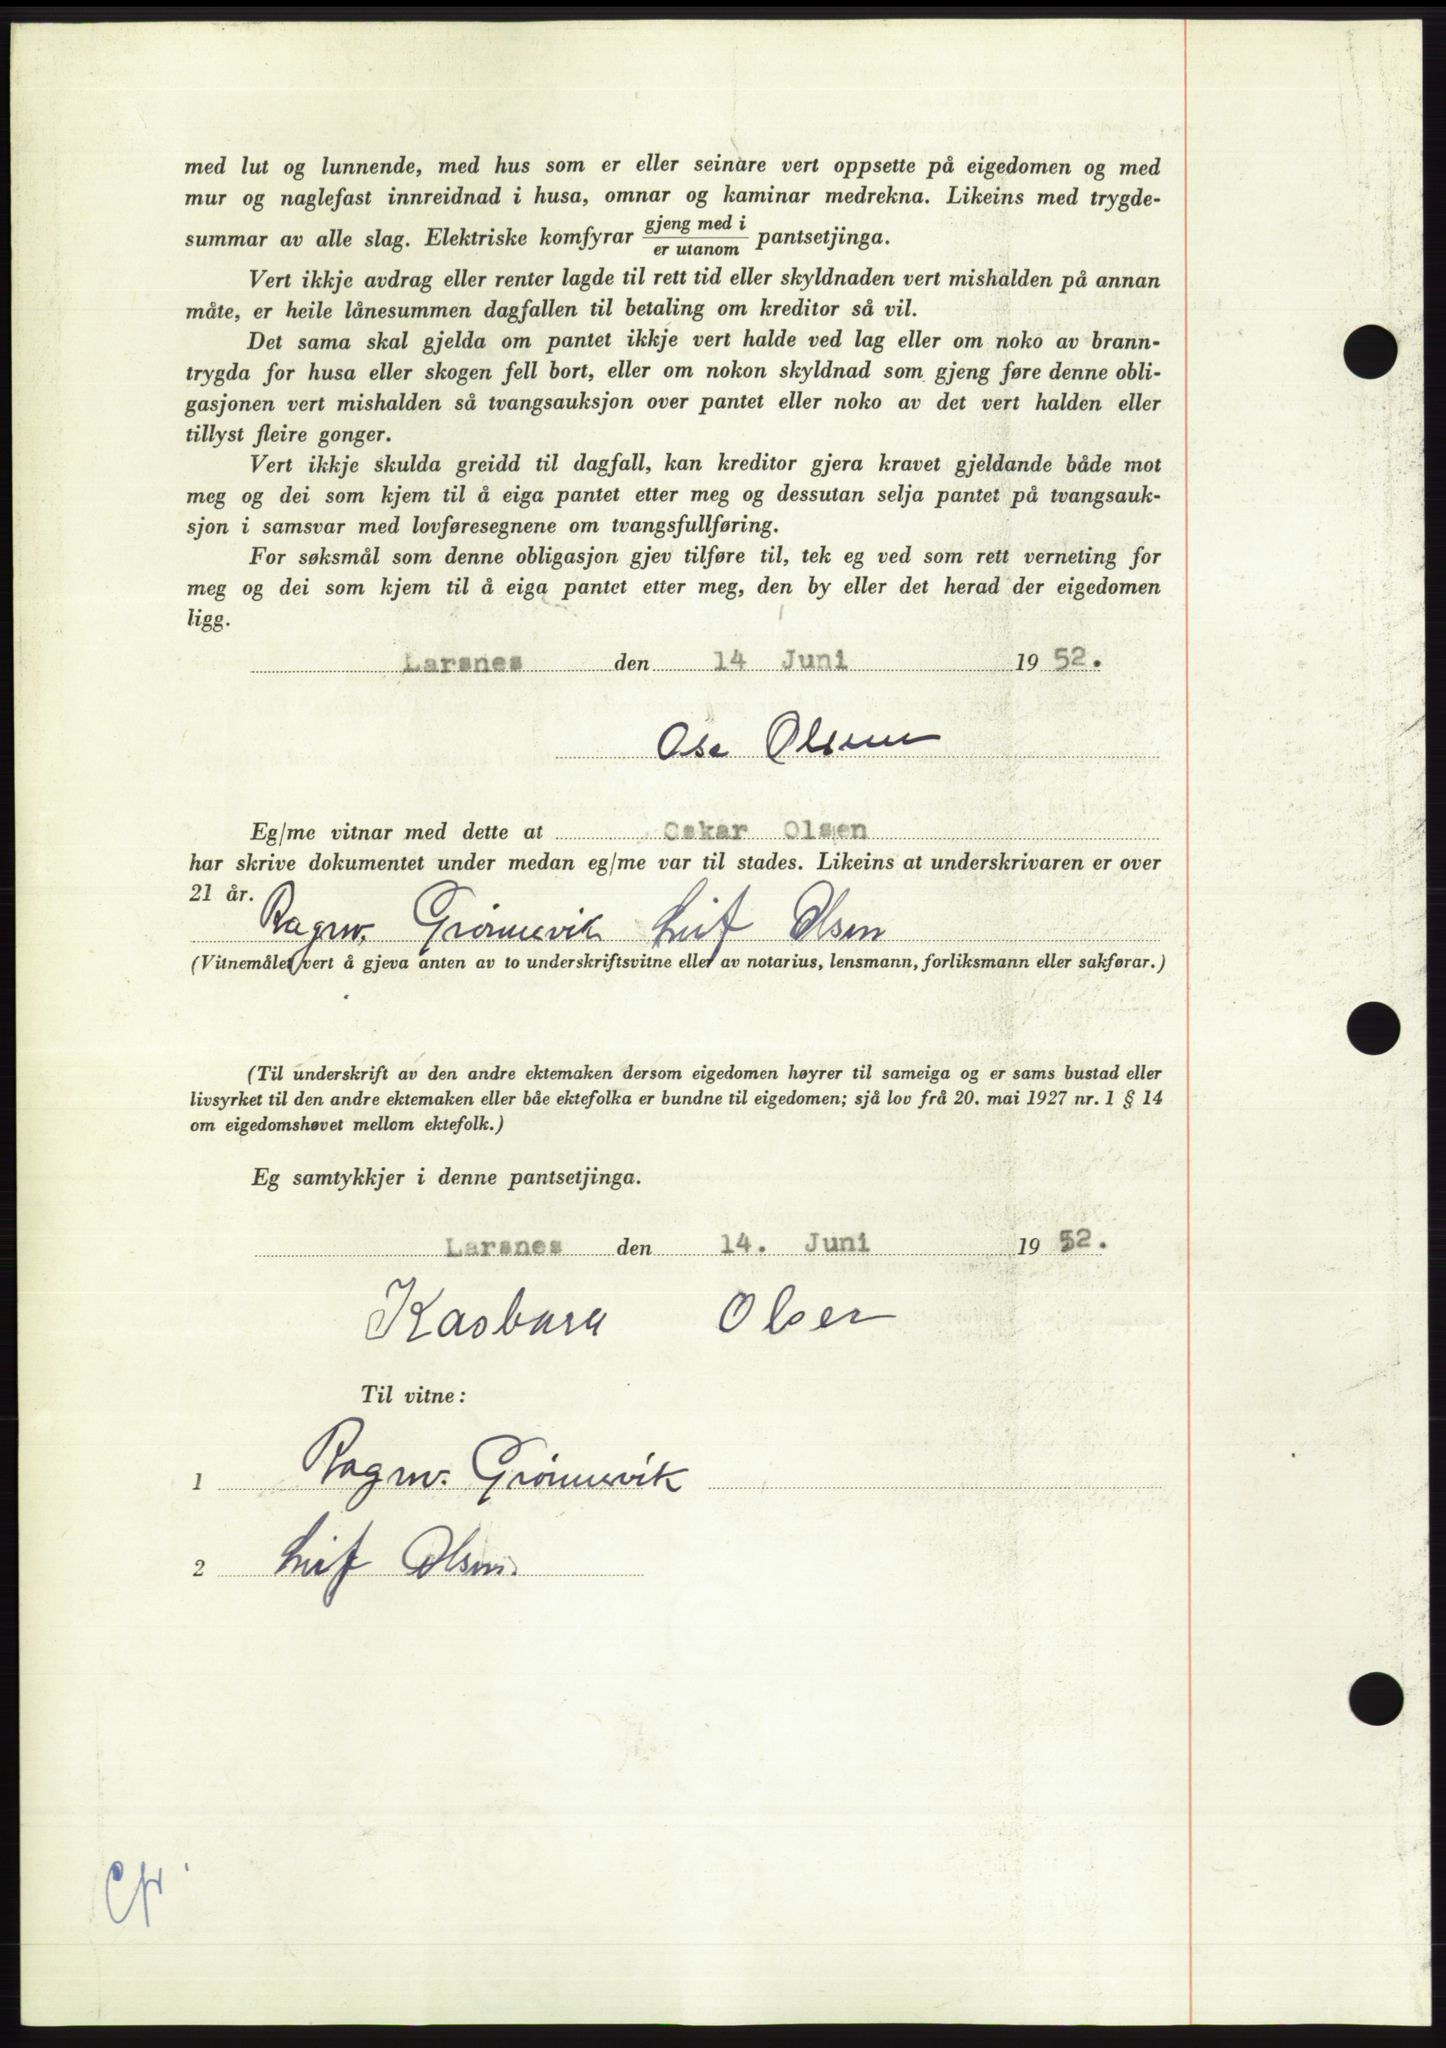 med lut og lunnende, med hus som er eller seinare vert oppsette på eigedomen og med
mur og naglefast innreidnad i husa, omnar og kaminar medrekna. Likeins med trygde-
summar av alle slag. Elektriske komfyrar gjeng med i / er utanom pantsetjinga.
Vert ikkje avdrag eller renter lagde til rett tid eller skyldnaden vert mishalden på annan
måte, er heile lånesummen dagfallen til betaling om kreditor så vil.
Det sama skal gjelda om pantet ikkje vert halde ved lag eller om noko av brann-
trygda for husa eller skogen fell bort, eller om nokon skyldnad som gjeng føre denne obli-
gasjonen vert mishalden så tvangsauksjon over pantet eller noko av det vert halden eller
tillyst fleire gonger.
Vert ikkje skulda greidd til dagfall, kan kreditor gjera kravet gjeldande både mot
meg og dei som kjem til å eiga pantet etter meg og dessutan selja pantet på tvangsauk-
sjon i samsvar med lovføresegnene om tvangsfullføring.
For søksmål som denne obligasjon gjev tilføre til, tek eg ved som rett verneting for
meg og dei som kjem til å eiga pantet etter meg, den by eller det herad der eigedomen
ligg.
Larsnes den 14 Juni 1952.
Olsen
Eg/me vitnar med dette at Oskar Olsen
har skrive dokumentet under medan eg/me var til stades. Likeins at underskrivaren er over
21 år.
Ragnv. Grønnevik Leif Olsen
(Vitnemålet vert å gjeva anten av to underskriftsvitne eller av notarius, lensmann, forliksmann eller sakførar.)
(Til underskrift av den andre ektemaken dersom eigedomen høyrer til sameiga og er sams bustad eller
livsyrket til den andre ektemaken eller båe ektefolka er bundne til eigedomen; sjå lov frå 20. mai 1927 nr. 1 § 14
om eigedomshøvet mellom ektefolk.)
Eg samtykkjer i denne pantsetjinga.
Larsnes den 14. Juni 1952.
Kasbara Olsen
Til vitne:
1 Ragnv. Grønnevik
2 Leif Olsen.